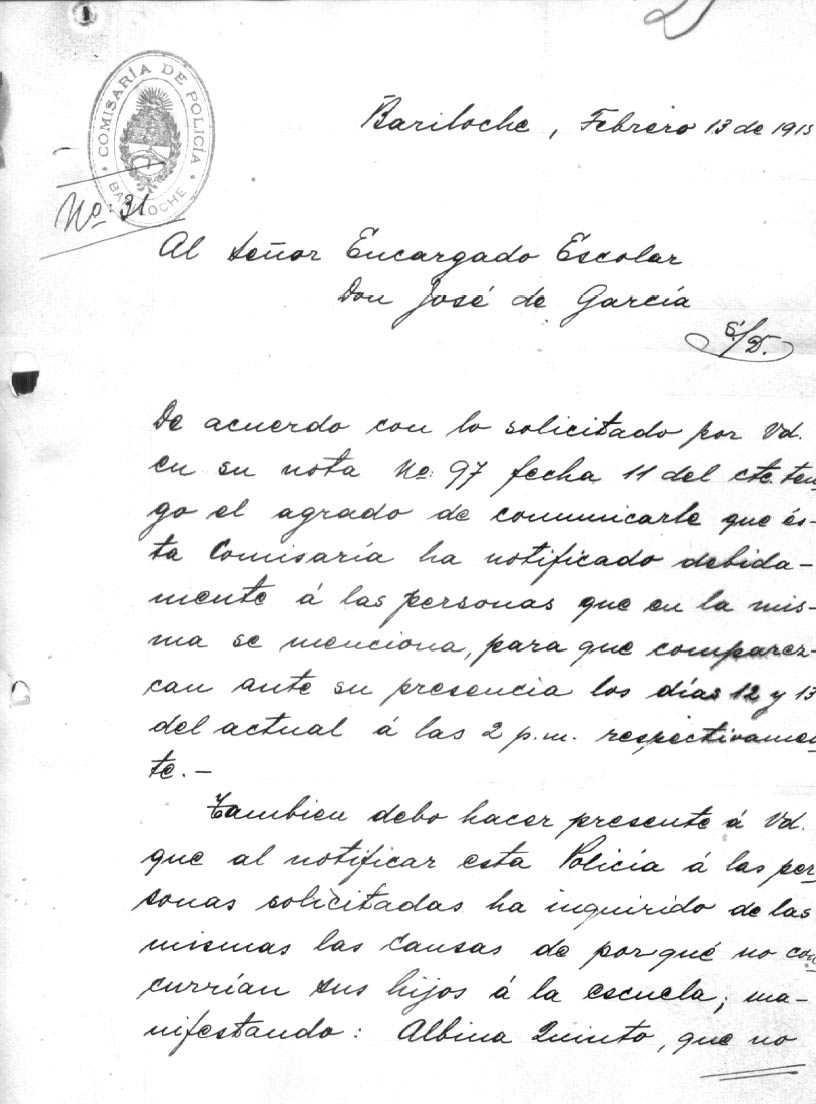 COMISARÍA DE POLICÍA
BARILOCHE
Nº: 31
Bariloche, Febrero 13 de 1915
Al Señor Encargado Escolar
Don José de García
S/D.
De acuerdo con lo solicitado por Vd.
en su nota Nº: 97 fecha 11 del cte. ten-
go el agrado de comunicarle que és-
ta Comisaría ha notificado debida-
mente á las personas que en la mis-
ma se menciona, para que comparez-
can ante su presencia los días 12 y 13
del actual á las 2 p.m. respectivamen
te.-
Tambien debo hacer presente á Vd.
que al notificar esta Policía á las per
sonas solicitadas ha inquirido de las
mismas las causas de porqué no con
currían sus hijos á la escuela; ma-
nifestando: Albina Quinto, que no